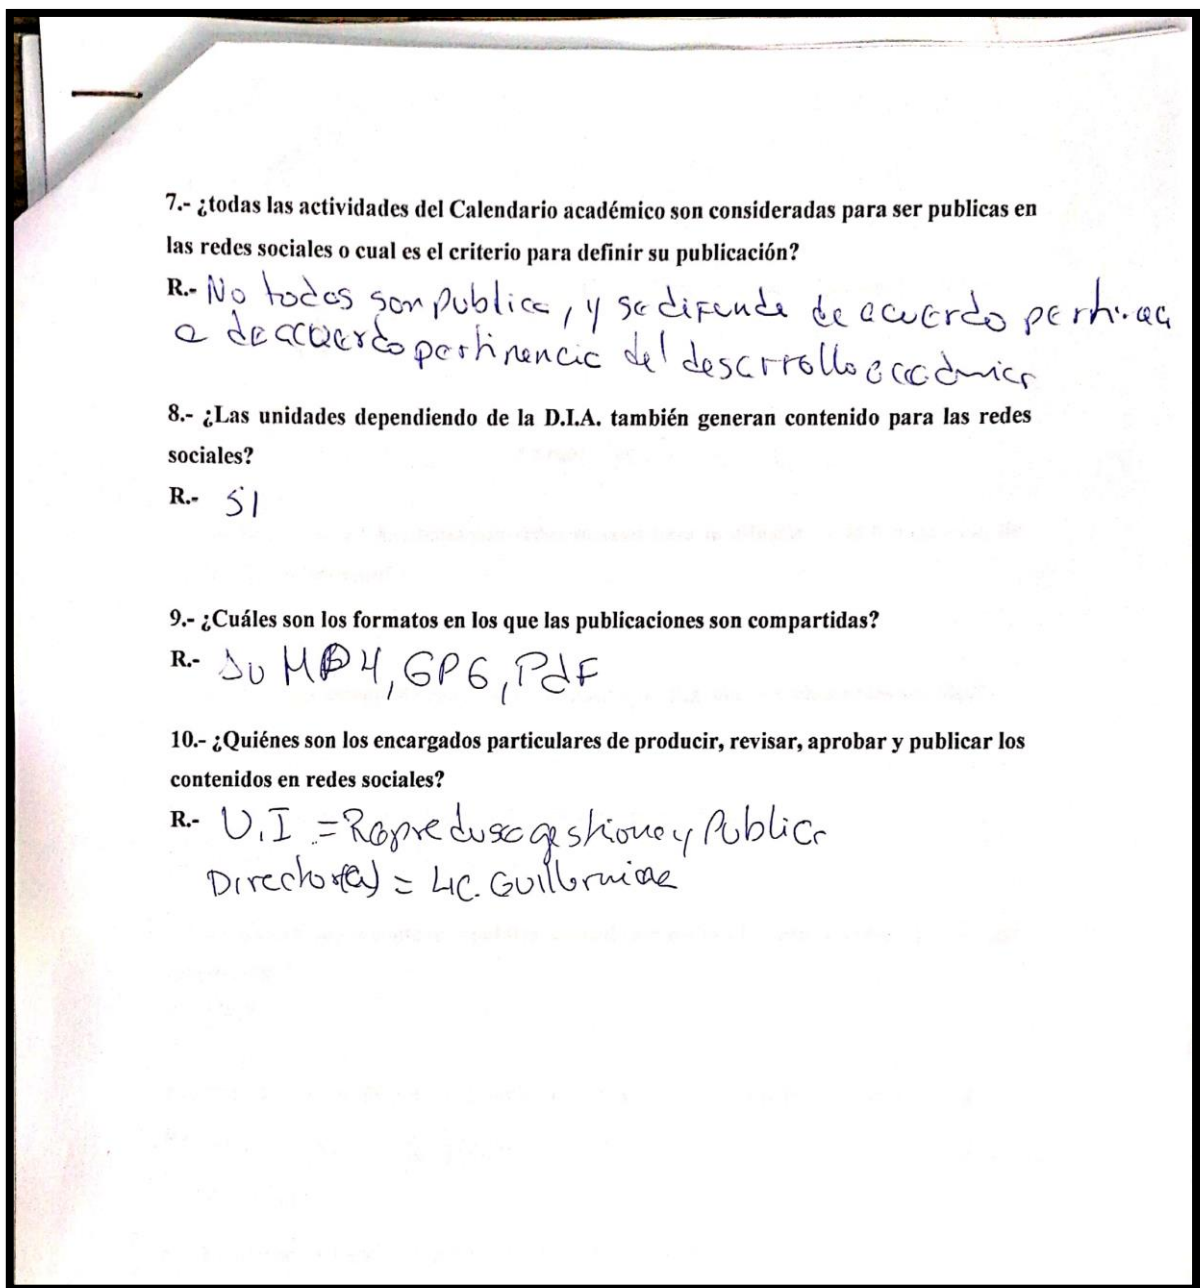 7.- ¿todas las actividades del Calendario académico son consideradas para ser publicas en
las redes sociales o cual es el criterio para definir su publicación?
R.- No todas son publica, y se difunde de acuerdo
a de acuerdo pertinencia del desarrollo
8.- ¿Las unidades dependiendo de la D.I.A. también generan contenido para las redes
sociales?
R.- SI
9.- ¿Cuáles son los formatos en los que las publicaciones son compartidas?
R.- MP4, GPG, PdF
10.- ¿Quiénes son los encargados particulares de producir, revisar, aprobar y publicar los
contenidos en redes sociales?
R.- U.I = gestiona y Publica
Director(a) = Lic.